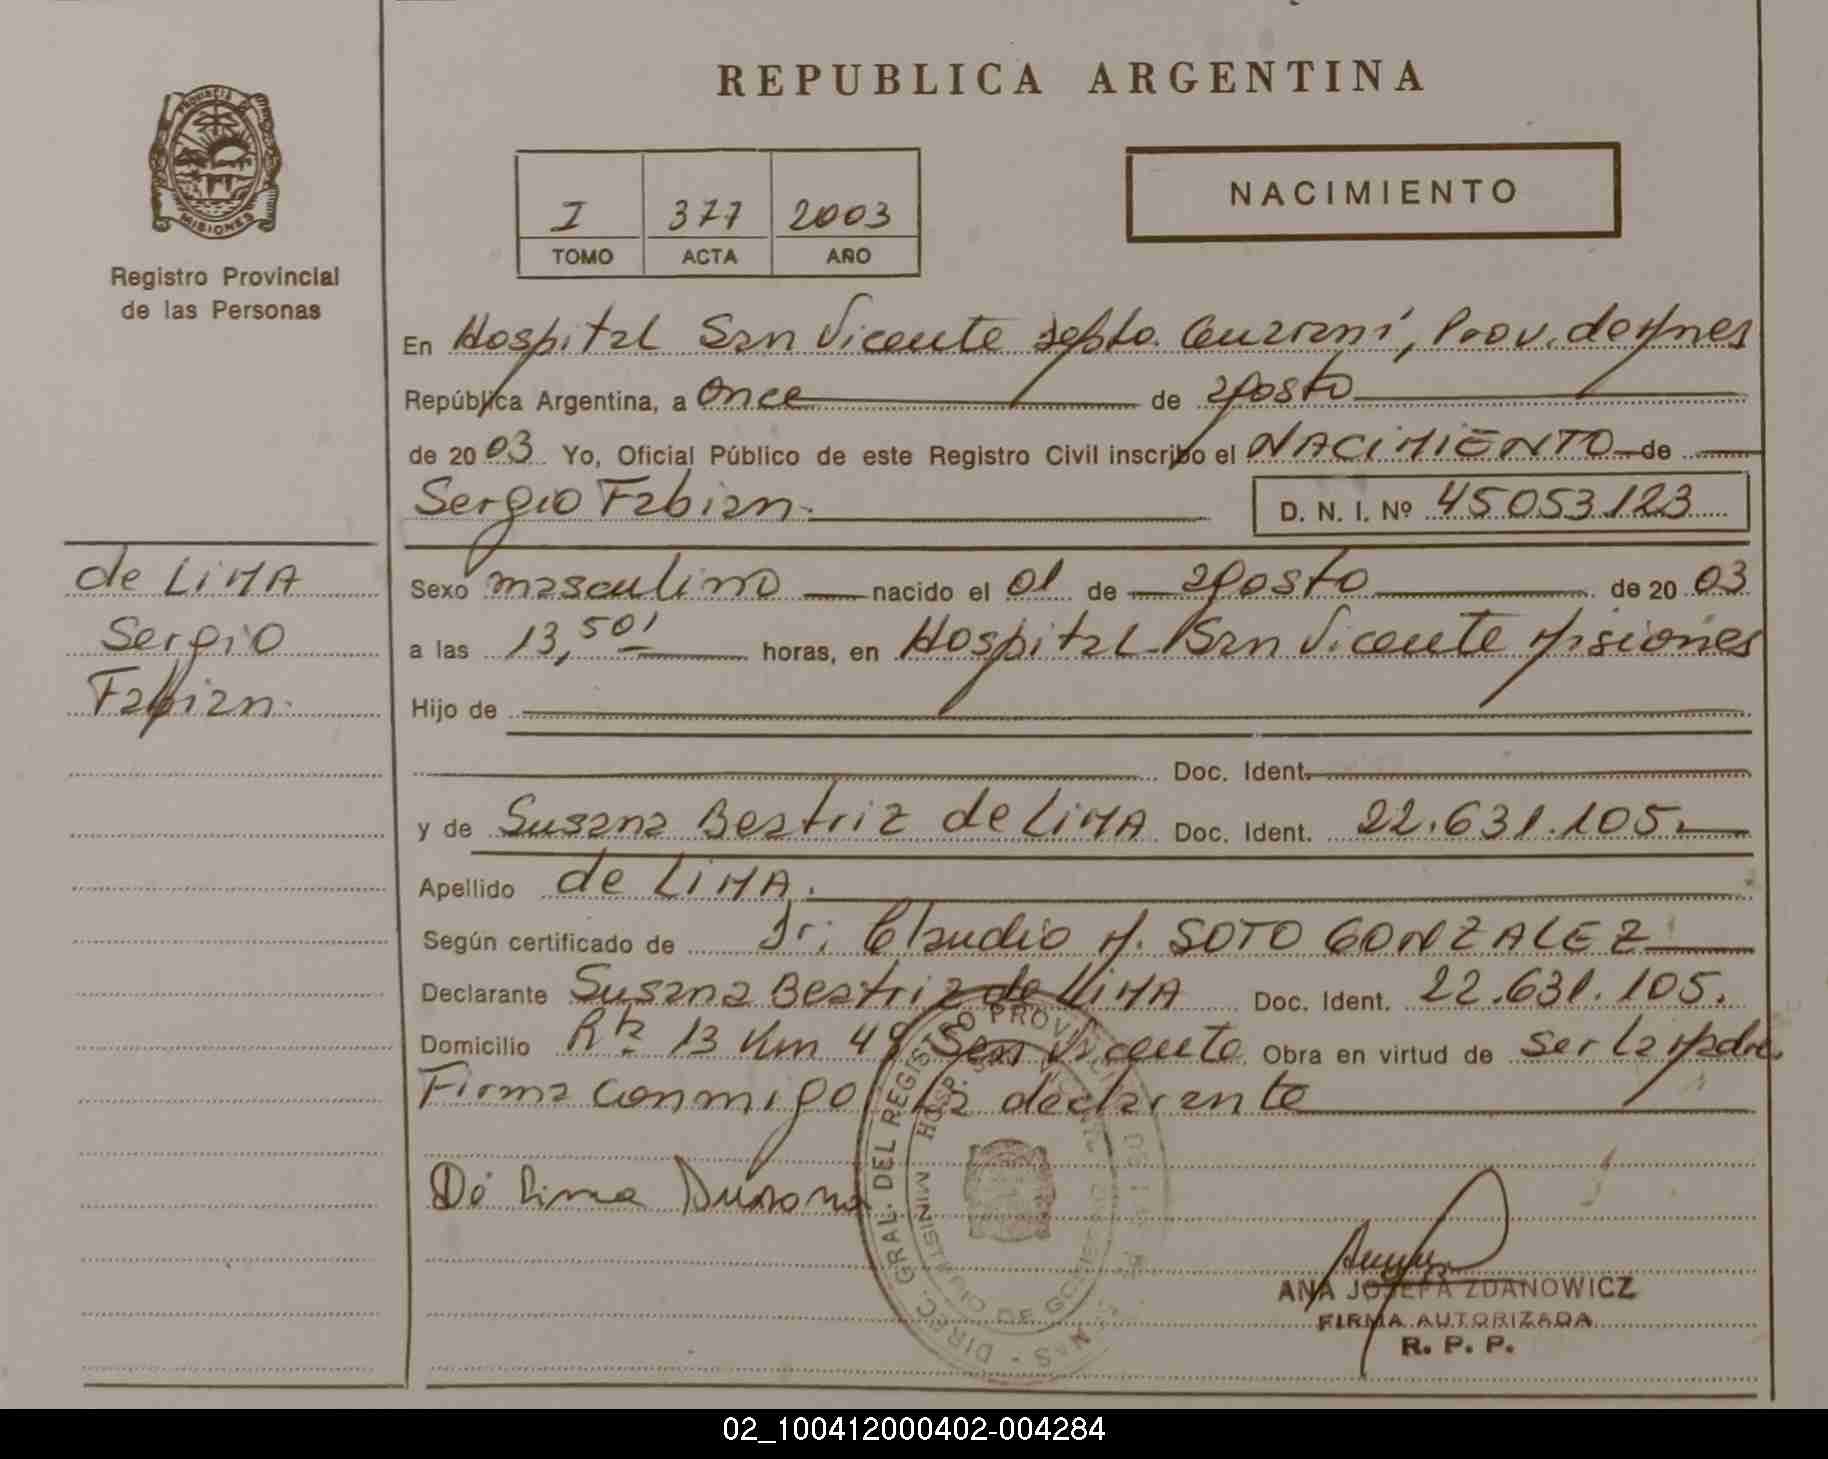 REPUBLICA ARGENTINA
PROVINCIA DE
MISIONES
Registro Provincial
de las Personas
I 377 2003
TOMO ACTA AÑO
NACIMIENTO
En Hospital San Vicente Depto. Guaraní, Prov. de Mnes
República Argentina, a once de agosto
de 2003 Yo, Oficial Público de este Registro Civil inscribo el NACIMIENTO de
Sergio Fabian. D. N. I. Nº 45053.123
de LiMA
Sergio
Fabian.
Sexo masculino nacido el 01 de agosto de 2003
a las 13,50' horas, en Hospital San Vicente Misiones
Hijo de
Doc. Ident.
y de Susana Beatriz de LiMA Doc. Ident. 22.631.105.
Apellido de LiMA.
Según certificado de Dr: Claudio M. SOTO GONZALEZ
Declarante Susana Beatriz de LiMA Doc. Ident. 22.631.105.
Domicilio Rta 13 Km 49 San Vicente Obra en virtud de ser la Madre.
Firma conmigo la declarante
De Lima Susana
DIREC. GRAL. DEL REGISTRO PROVINCIAL DE LAS
HOSP. SAN VICENTE
MINISTERIO DE GOBIERNO
ANA JOSEFA ZDANOWICZ
FIRMA AUTORIZADA
R. P. P.
02_100412000402-004284